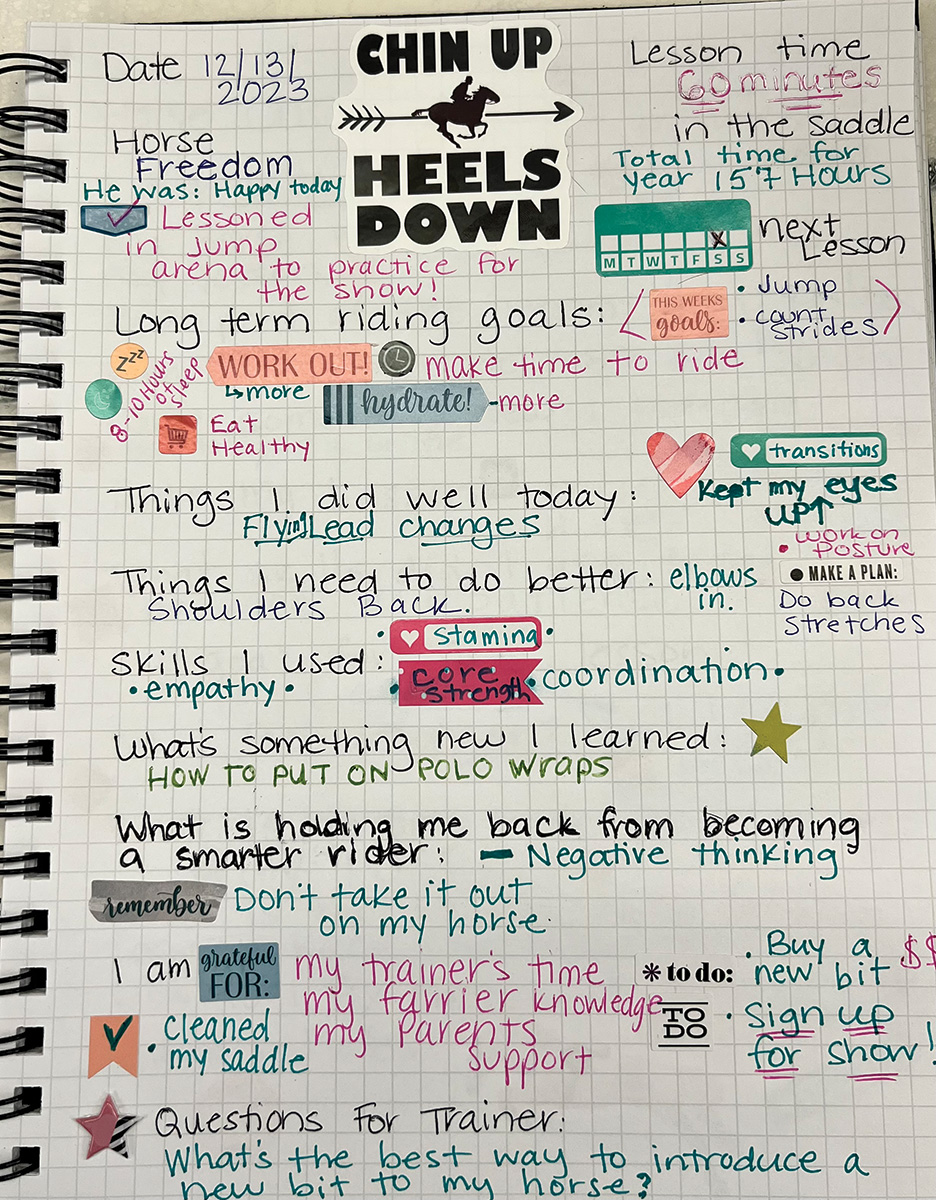 Date 12/13/
2023
CHIN UP
HEELS
DOWN
Lesson time
60 minutes
in the saddle
Total time for
year 157 Hours
Horse
Freedom
He was: Happy today
Lessoned
in Jump
arena to practice for
the show!
M T W T F S S
X
next
Lesson
Long term riding goals:
THIS WEEKS
goals:
• Jump
• count
strides
zzz
8-10 Hours
of
sleep
WORK OUT!
↳more
make time to ride
hydrate!
-more
Eat
Healthy
Things I did well today:
Flying Lead changes
transitions
Kept my eyes
UP↑
Things I need to do better: elbows
in.
Shoulders Back.
• work on
posture
• MAKE A PLAN:
Do back
stretches
Skills I used:
• empathy •
• stamina •
• core
strength
• coordination •
What's something new I learned:
HOW TO PUT ON POLO Wraps
What is holding me back from becoming
a smarter rider: - Negative thinking
remember Don't take it out
on my horse.
I am grateful
FOR:
my trainer's time
my farrier knowledge
my Parents
support
* to do:
TO
DO
• Buy a
new bit
$$
• Sign up
for show!
• cleaned
my saddle
Questions For Trainer:
What's the best way to introduce a
new bit to my horse?